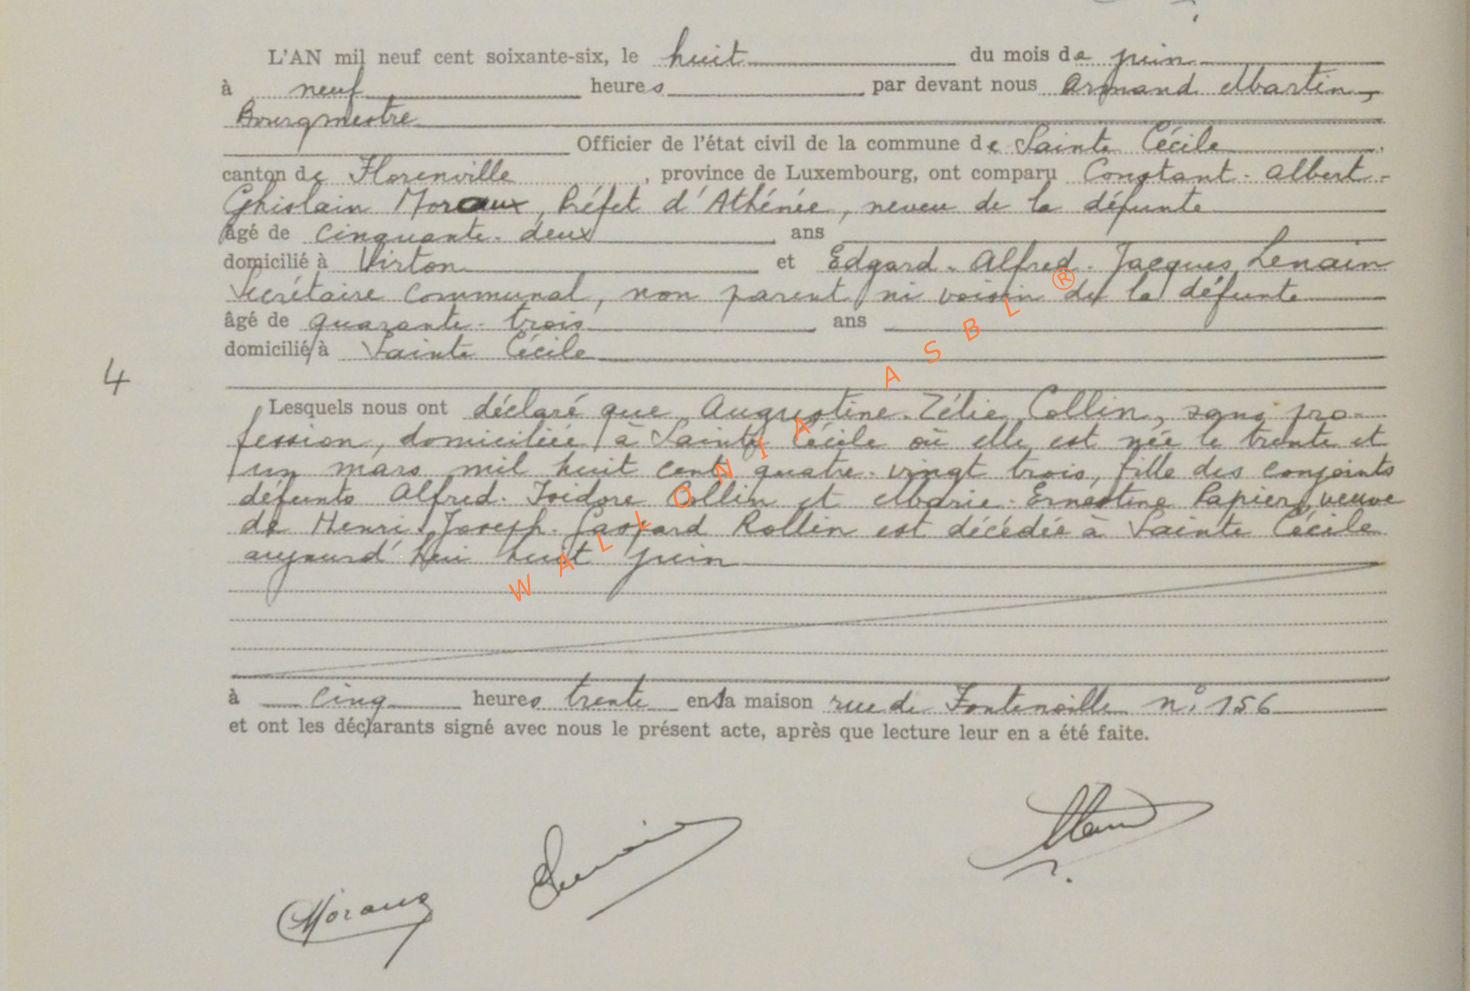 L'AN mil neuf cent soixante-six, le huit du mois de juin
à neuf heures par devant nous Armand Martin,
Bourgmestre
Officier de l'état civil de la commune de Sainte Cécile
canton de Florenville, province de Luxembourg, ont comparu Constant-Albert-
Ghislain Moraux, Préfet d'Athénée, neveu de la défunte
âgé de cinquante-deux ans
domicilié à Virton et Edgard-Alfred-Jacques Lenain
Secrétaire communal, non parent ni voisin de la défunte
âgé de quarante-trois ans
domicilié à Sainte Cécile
4
Lesquels nous ont déclaré que Augustine-Zélie Collin, sans pro-
fession, domiciliée à Sainte Cécile où elle est née le trente et
un mars mil huit cent quatre-vingt trois, fille des conjoints
défunts Alfred-Isidore Collin et Marie-Ernestine Papier, veuve
de Henri-Joseph-Gaspard Rollin est décédée à Sainte Cécile
aujourd'hui huit juin
à cinq heures trente en sa maison rue de Fontenoille n° 156
et ont les déclarants signé avec nous le présent acte, après que lecture leur en a été faite.
Moraux
WALLONIA ASBL ®